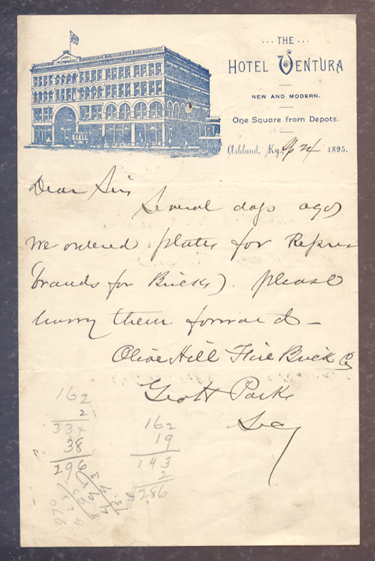 THE
HOTEL VENTURA
NEW AND MODERN.
One Square from Depots.
Ashland, Ky., 24 1895.
Dear Sir
Several days ago
we ordered plates for
brands for Bricks). please
hurry them forward -
Olive Hill Fire Brick Co
Geo H Parks
Secy
162
2
334
38
296
162
19
143
2
286